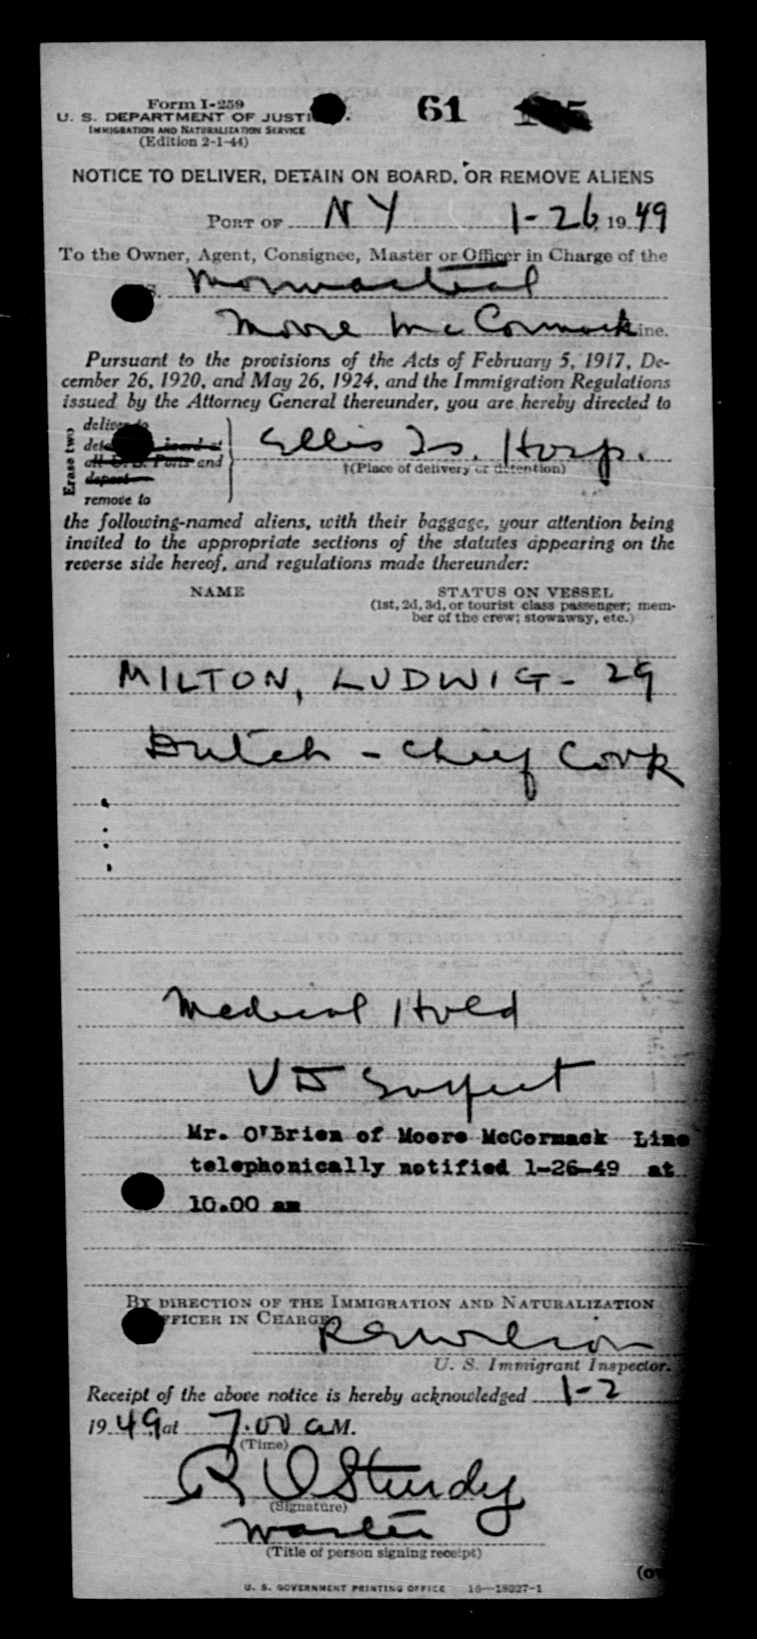 Form I-259
U. S. DEPARTMENT OF JUSTI
IMMIGRATION AND NATURALIZATION SERVICE
(Edition 2-1-44)
61
NOTICE TO DELIVER, DETAIN ON BOARD, OR REMOVE ALIENS
PORT OF NY 1-26, 1949
To the Owner, Agent, Consignee, Master or Officer in Charge of the
S. Mormacteal
Moore McCormack Line.
Pursuant to the provisions of the Acts of February 5, 1917, De-
cember 26, 1920, and May 26, 1924, and the Immigration Regulations
issued by the Attorney General thereunder, you are hereby directed to
Erase two
deliver to
detain on board at
all U. S. Ports and
deport
remove to
Ellis Is. Hosp.
†(Place of delivery or detention)
the following-named aliens, with their baggage, your attention being
invited to the appropriate sections of the statutes appearing on the
reverse side hereof, and regulations made thereunder:
NAME STATUS ON VESSEL
(1st, 2d, 3d, or tourist class passenger; mem-
ber of the crew; stowaway, etc.)
MILTON, LUDWIG - 29
Dutch - Chief Cook
Medical Hold
VD Suspect
Mr. O'Brien of Moore McCormack Line
telephonically notified 1-26-49 at
10.00 am
BY DIRECTION OF THE IMMIGRATION AND NATURALIZATION
OFFICER IN CHARGE
U. S. Immigrant Inspector.
Receipt of the above notice is hereby acknowledged 1-2
1949, at 7:00 a.M.
(Time)
R O Sturdy
(Signature)
Master
(Title of person signing receipt)
U. S. GOVERNMENT PRINTING OFFICE 16—18227-1
(ov